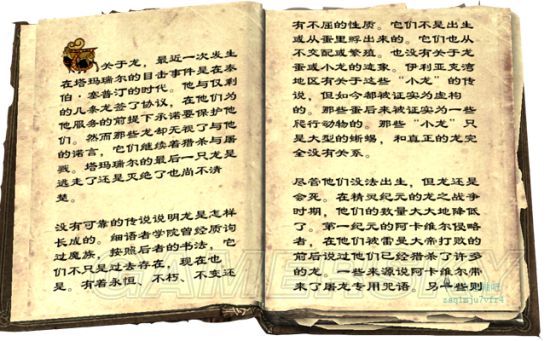 关于龙，最近一次发生
在塔玛瑞尔的目击事件是在泰
伯·塞普汀的时代。他与仅剩
的几条龙签了协议，在他们为
他服务的前提下承诺要保护他
们。然而那些龙却无视了与他
的诺言，它们继续着猎杀与屠
戮。塔玛瑞尔的最后一只龙是
逃走了还是灭绝了也尚不清
楚。
没有可靠的传说说明龙是怎样
长成的。细语者学院曾经质询
过魔族，按照后者的书法，它
们不只是过去存在，现在也
是。有着永恒、不朽、不变还
有不屈的性质。它们不是出生
或从蛋里孵出来的。它们也从
不交配或繁殖。也没有关于龙
蛋或小龙的迹象。伊利亚克湾
地区有关于这些“小龙”的传
说，但如今都被证实为虚构
的。那些蛋后来被证实为一些
爬行动物的。那些“小龙”只
是大型的蜥蜴，和真正的龙完
全没有关系。
尽管他们没法出生，但龙还是
会死。在精灵纪元的龙之战争
时期，他们的数量大大地降低
了。第一纪元的阿卡维尔侵略
者，在他们被雷曼大帝打败的
前后说过他们已经猎杀了许多
的龙。一些来源说阿卡维尔带
来了屠龙专用咒语，另一些则
zaq1mju7vfr4